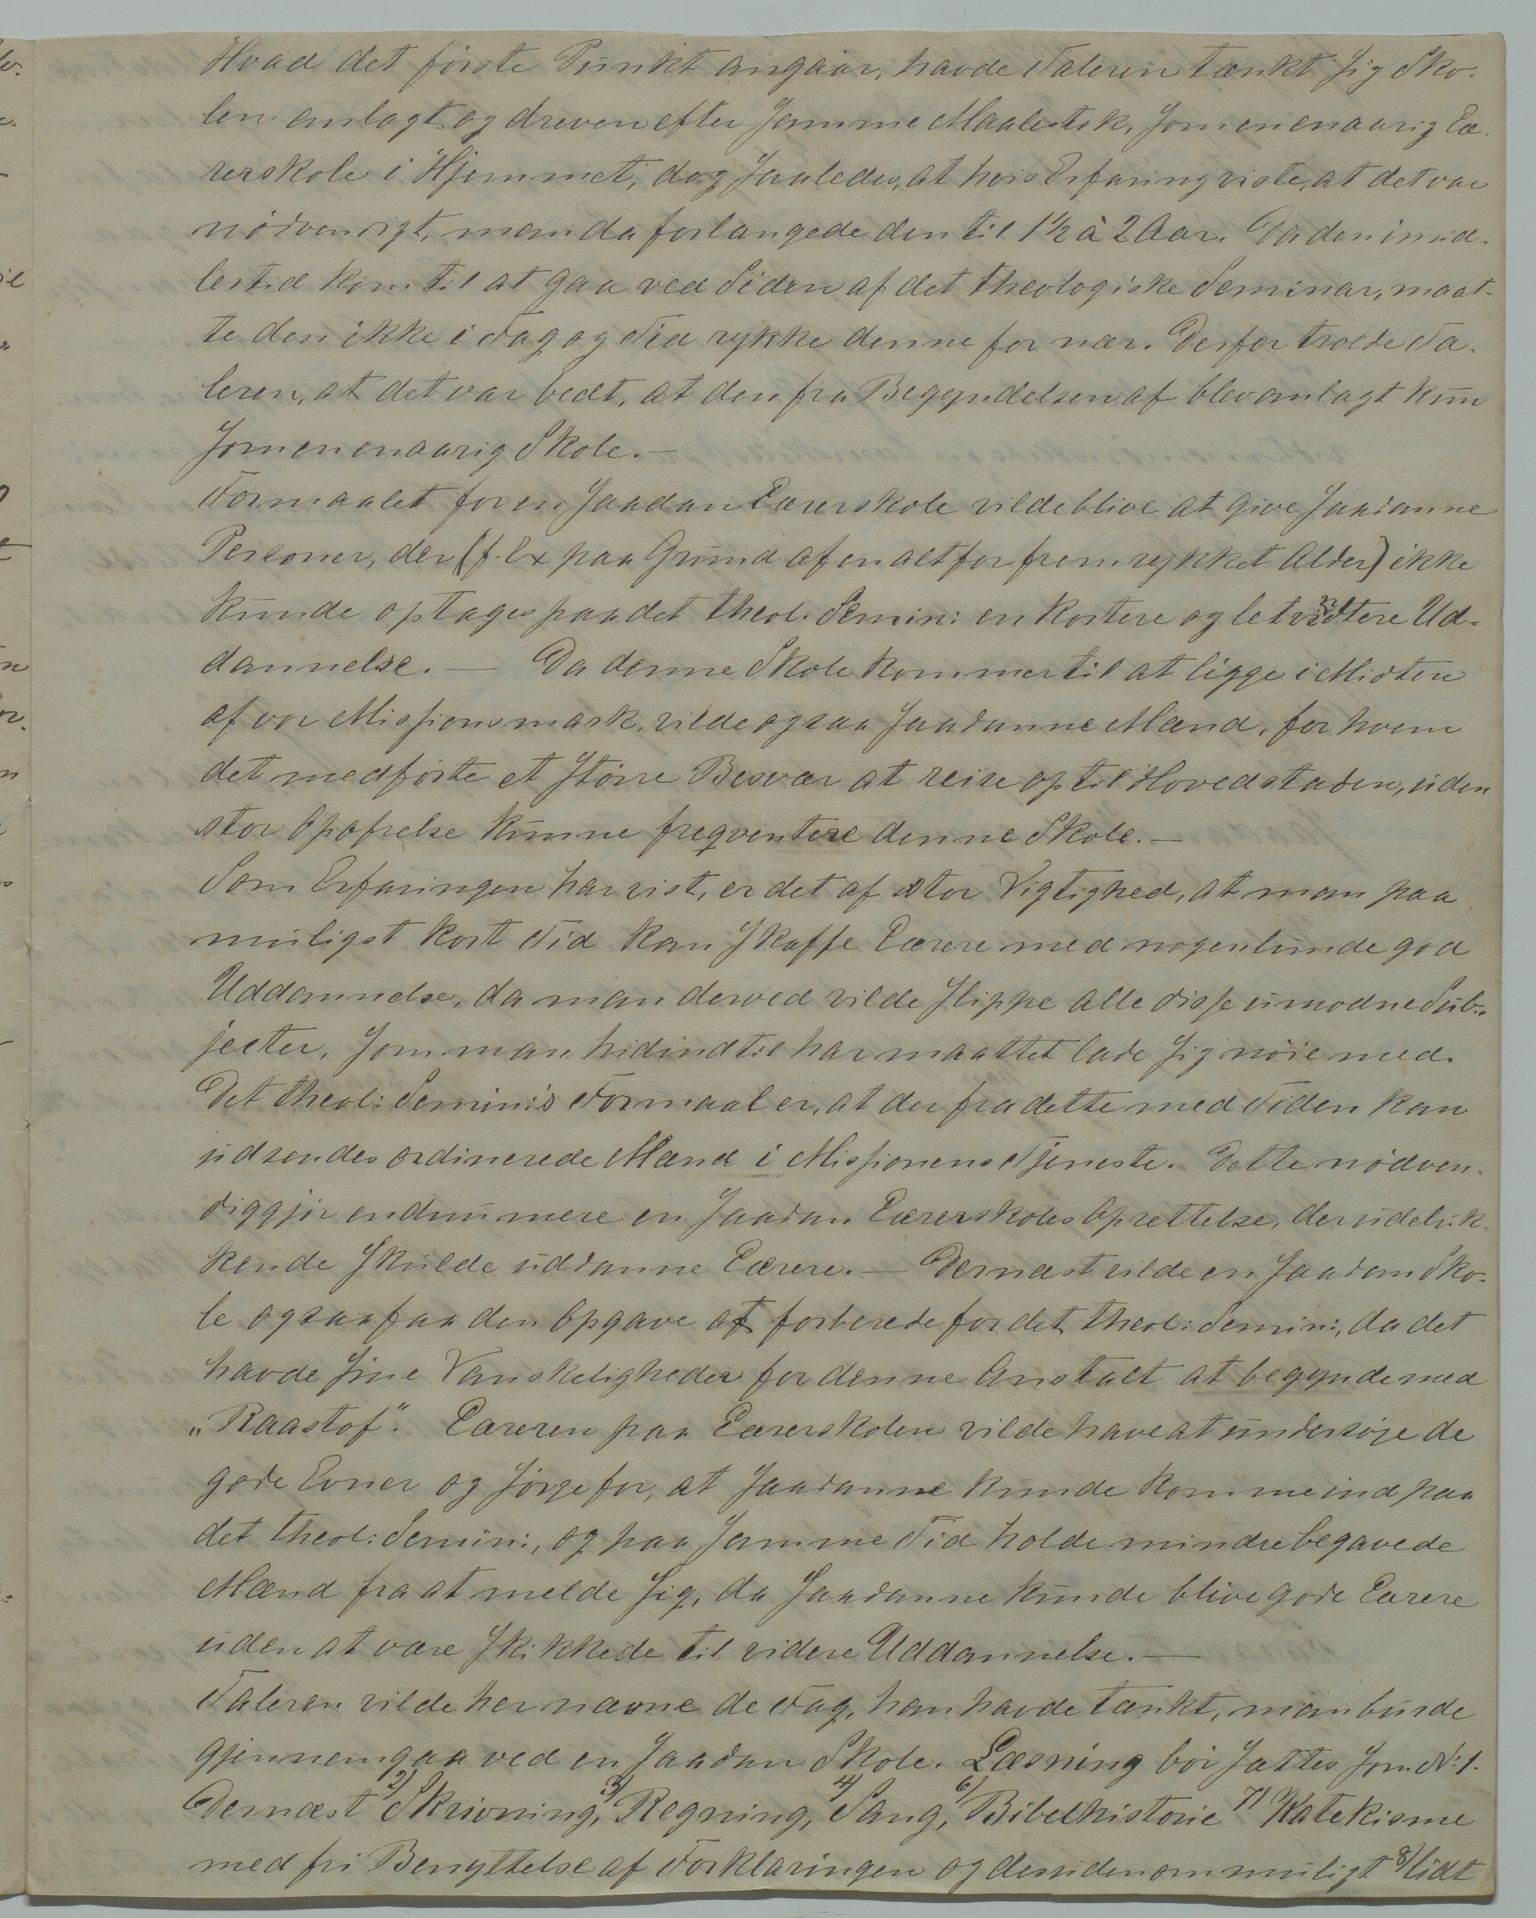 Hvad det første Punkt angaar, havde Taleren tænkt sig Sko-
len anlagt og dreven efter samme Maalestok, som en enaarig Læ-
rerskole i Hjemmet, dog saaledes, at hvis Erfaring viste, at det var
nødvendigt, man da forlængede den til 1½ à 2 Aar. Da den imid-
lertid kom til at gaa ved Siden af det theologiske Seminar, maat-
te den ikke i Fag og Tid rykke denne for nær. Derfor troede Ta-
leren, at det var bedt, at den fra Begyndelsen af blev anlagt kun
som en enaarig Skole. —
Formaalet for en saadan Lærerskole vilde blive at give saadanne
Personer, der (f. Ex paa Grund af en altfor fremrykket Alder) ikke
kunde optages paa det theol. Semin: en kortere og lettere Ud-
dannelse. — Da denne Skole kommer til at ligge i Midten
af vor Missionsmark, vilde ogsaa saadanne Mænd, for hvem
det medførte et større Besvær at reise op til Hovedstaden, uden
stor Opofrelse kunne freqventere denne Skole. —
Som Erfaringen har vist, er det af stor Vigtighed, at man paa
muligst kort Tid kan skaffe Lærere med nogenlunde god
Uddannelse, da man derved vilde slippe alle disse umodne Sub-
jecter, som man hidindtil har maattet lade sig nøie med.
Det theol: Semin:s Formaal er, at der fra dette med Tiden kan
udsendes ordinerede Mænd i Missionens Tjeneste. Dette nødven-
diggjør endnu mere en saadan Lærerskoles Oprettelse, der udeluk-
kende skulde uddanne Lærere. — Dernæst vilde en saadan Sko-
le ogsaa faa den Opgave at forberede for det theol: Semin:, da det
havde sine Vanskeligheder for denne Anstalt at begynde med
„Raastof". Læreren paa Lærerskolen vilde have at undersøge de
gode Evner og sørge for, at saadanne kunde komme ind paa
det theol: Semin:, og paa samme Tid holde mindre begavede
Mænd fra at melde sig, da saadanne kunde blive gode Lærere
uden at være skikkede til videre Uddannelse. —
Taleren vilde her nævne de Fag, han havde tænkt, man burde
gjennemgaa ved en saadan Skole. Læsning bør sættes som N: 1.
Dernæst 2) Skrivning, 3) Regning, 4) Sang, 6) Bibelhistorie 7) Katekisme
med fri Benyttelse af Forklaringen og desuden om muligt 8) lidt